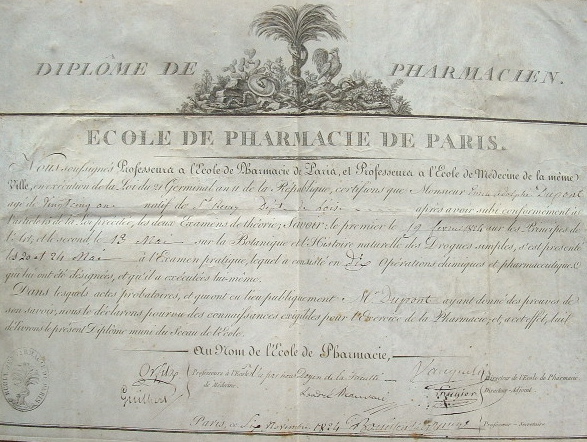 DIPLÔME DE PHARMACIEN.
ECOLE DE PHARMACIE DE PARIS.
Nous soussignés Professeurs à l'Ecole de Pharmacie de Paris, et Professeurs à l'Ecole de Médecine de la même
Ville, en exécution de la Loi du 21 Germinal an 11 de la République, certifions que Monsieur Dupont
agé de Vingt cinq ans natif de Dépt. de après avoir subi conformement à
l'article 15 de la Loi précitée, les deux Examens de théorie; Savoir: le premier le 19 1824 sur les Principes de
l'Art, et le second le 12 Mai sur la Botanique et l'Histoire naturelle des Drogues simples, s'est présenté
les 20 et 24 Mai à l'Examen pratique, lequel a consisté en Dix Opérations chimiques et pharmaceutiques
qui lui ont été désignées, et qu'il a exécutées lui-même.
Dans lesquels actes probatoires, et qui ont eu lieu publiquement M. Dupont ayant donné des preuves de
son savoir, nous le déclarons pourvu des connaissances exigibles pour l'Exercice de la Pharmacie; et, à cet effet, lui
délivrons le présent Diplôme muni du Sceau de l'Ecole.
Au Nom de l'Ecole de Pharmacie,
Orfila Professeurs à l'Ecole de Médecine. Doyen de la Vauquelin Directeur de l'Ecole de Pharmacie
Guilbert Directeur-Adjoint
Paris, ce Novembre 1824 Professeur-Secrétaire